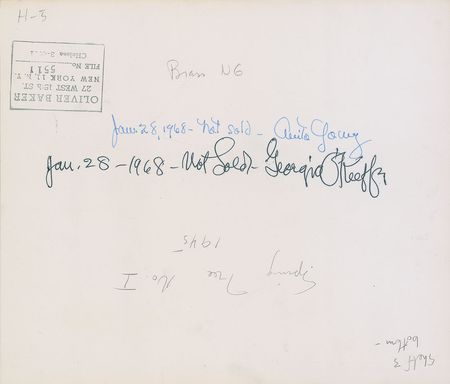 H-5
OLIVER BAKER
27 WEST 15th ST.
NEW YORK 11, N.Y.
FILE No. 5511
CHelsea 3-
Brass NG
Jan. 28, 1968 - Not sold - Anita Young
Jan. 28 - 1968 - Not Sold - Georgia O'Keeffe
Spring Tree No. I
1945
Shelf 3
bottom -